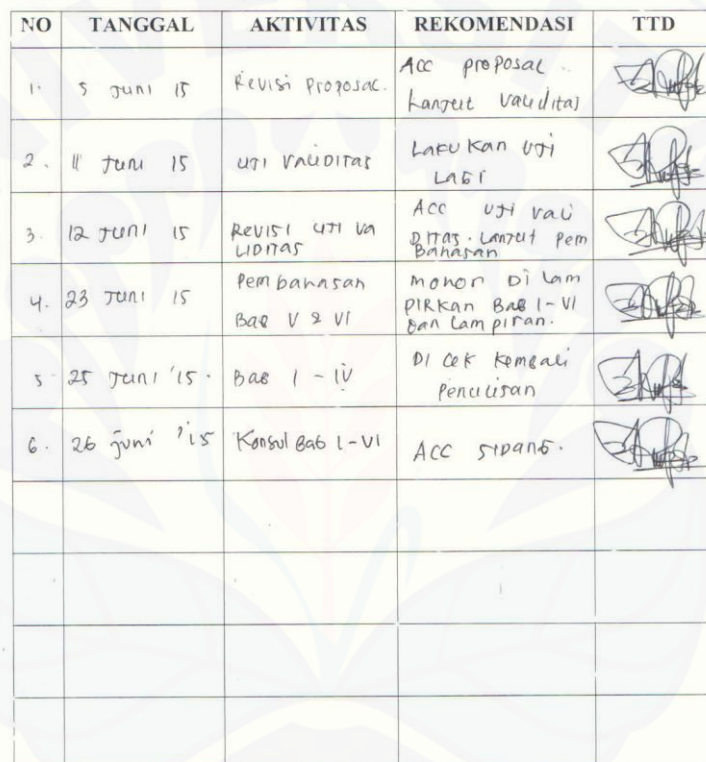 NO TANGGAL AKTIVITAS REKOMENDASI TTD
1. 5 Juni 15 Revisi Proposal. Acc proposal.
Lanjut Validitas
2. 11 Juni 15 Uji Validitas Lakukan Uji
Lagi
3. 12 Juni 15 Revisi Uji Va
liditas
Acc Uji Vali
ditas. Lanjut Pem
bahasan
4. 23 Juni 15 Pembahasan
Bab V & VI
Mohon Di Lam
pirkan Bab I-VI
dan Lampiran.
5 25 Juni '15. Bab I - IV Di cek kembali
Penulisan
6. 26 Juni '15 Konsul Bab I-VI ACC SIDANG.